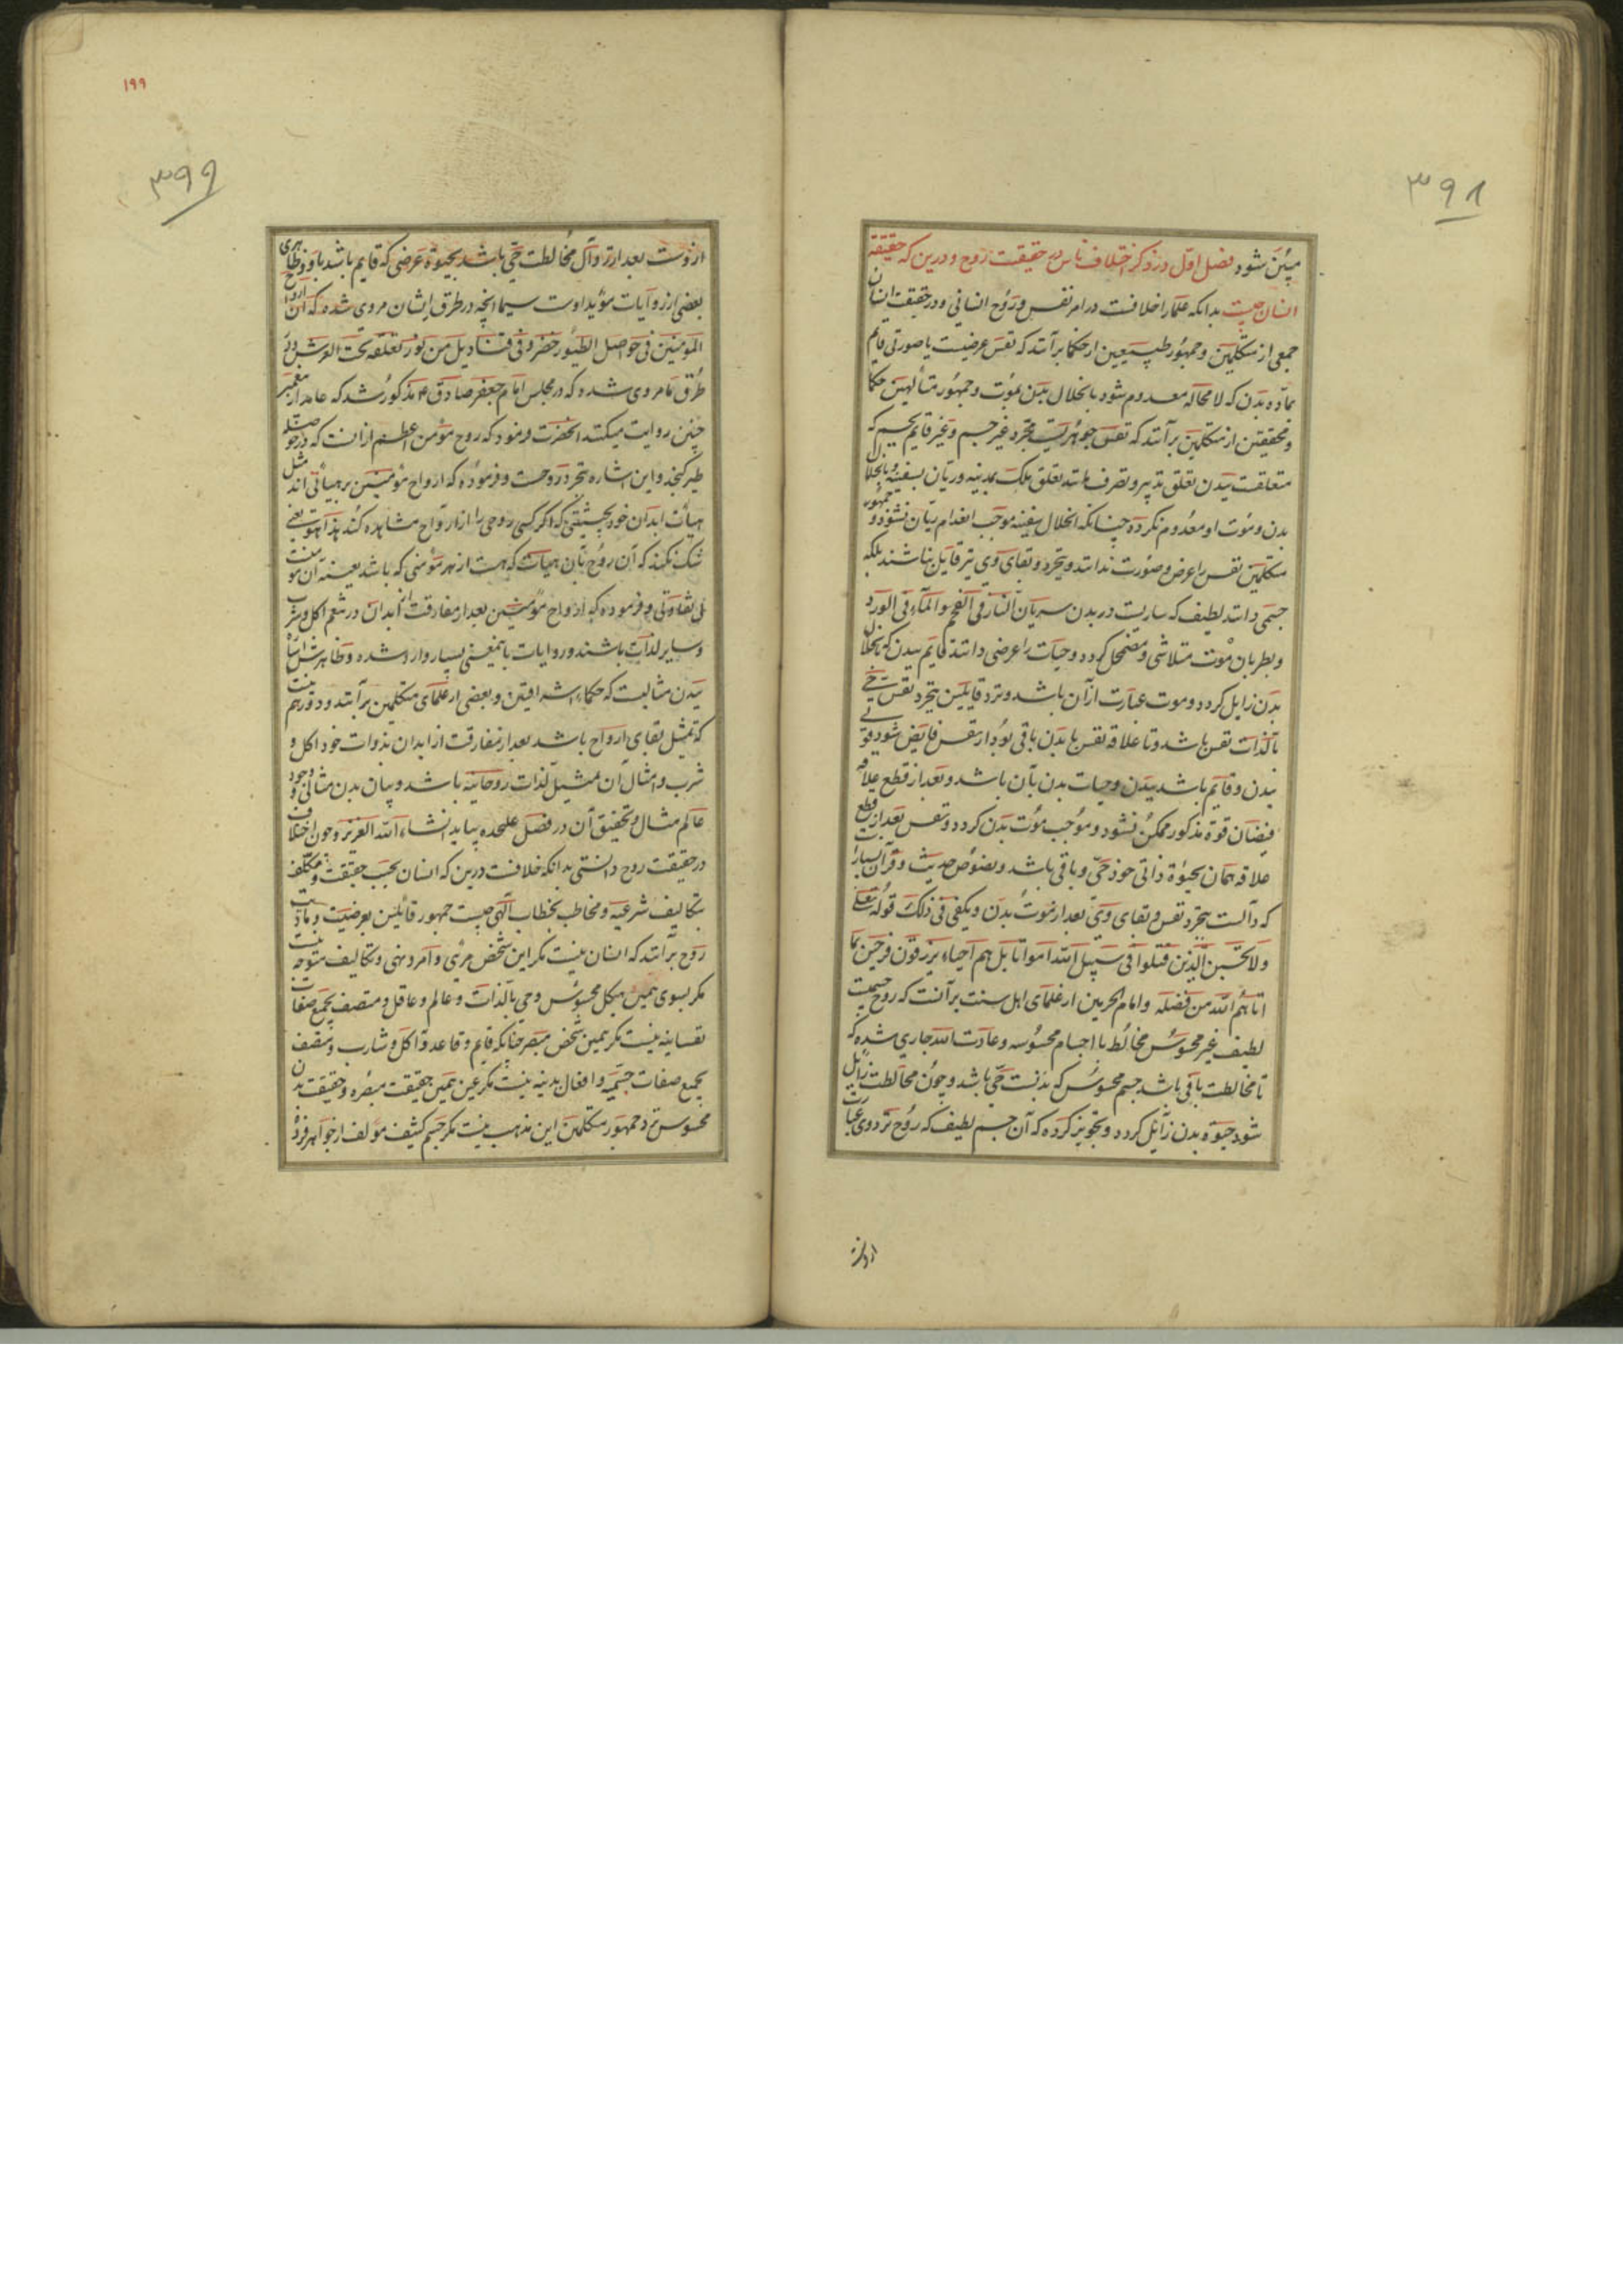 ۳۹۸
مبین شود فصل اول در ذکر اختلاف ناس در حقیقت روح و درین که حقیقة
انسان چیست بدانکه علما را خلافست در امر نفس و روح انسانی و در حقیقت انسان
جمعی از متکلمین و جمهور طبیعیین از حکما برآنند که نفس عرضیست یا صورتی قایم
بماده بدن که لامحاله معدوم شود بانحلال بدن بموت و جمهور متألهین حکما
و محققین از متکلمین برآنند که نفس جوهریست مجرد غیر جسم و غیر قایم بجسم که
متعلقست ببدن تعلق تدبیر و تصرف مانند تعلق ملک بمدینه و ربان بسفینه و بانحلال
بدن و موت او معدوم نگردد چنانکه انحلال سفینه موجب انعدام ربان نشود و جمهور
متکلمین نفس را عرض و صورت ندانند و بتجرد و بقای وی نیز قایل نباشند بلکه
جسمی دانند لطیف که ساریست در بدن سریان النار فی الفحم و الماء فی الورد
و بطریان موت متلاشی و مضمحل گردد و حیات را عرضی دانند قایم ببدن که بانحلال
بدن زایل گردد و موت عبارت از آن باشد و نزد قایلین بتجرد نفس حی
بالذات نفس باشد و تا علاقه نفس با بدن باقی بود از نفس فایض شود قوتی
ببدن و قایم باشد ببدن و حیات بدن بآن باشد و بعد از قطع علاقه
فیضان قوة مذکور ممکن نشود و موجب موت بدن گردد و نفس بعد از قطع
علاقه همان بحیوة ذاتی خود حی و باقی باشد و نصوص حدیث و قرآن بسیار است
که دالست بتجرد نفس و بقای وی بعد از موت بدن و یکفی فی ذلک قوله تعلی
ولا تحسبن الذین قتلوا فی سبیل الله امواتا بل هم احیاء یرزقون فرحین بما
اتاهم الله من فضله و امام الحرمین از علمای اهل سنت برآنست که روح جسمیست
لطیف غیر محسوس مخالط با اجسام محسوسه و عادت الله جاری شده که
تا مخالطت باقی باشد جسم محسوس که بدنست حی باشد و چون مخالطت زایل
شود حیوة بدن زایل گردد و تجویز کرده که آن جسم لطیف که روح نزد وی عبارت
ازوست
۱۹۹
۳۹۹
ازوست بعد از زوال مخالطت حی باشد بحیوة عرضی که قایم باشد باو و ظاهری
بعضی از روایات مؤید اوست سیما آنچه در طرق ایشان مروی شده که ان ارواح
المؤمنین فی حواصل الطیور خضر و فی قنادیل من نور معلقه تحت العرش و در
طرق ما مروی شده که در مجلس امام جعفر صادق ع مذکور شد که عامه از پیغمبر
چنین روایت میکنند آنحضرت فرمود که روح مؤمن اعظم از انست که در حوصله
طیر گنجد و این اشاره بتجرد روحست و فرموده که ارواح مؤمنین بر هیأتی اند مثل
هیأت ابدان خود بحیثیتی که اگر کسی روحی را از ارواح مشاهده کند بذا هو یعنی
شک نکند که آن روح بآن هیأت که هست از بهر مؤمنی که باشد بعینه آن مؤمنست
بی تفاوتی و فرموده که ارواح مؤمنین بعد از مفارقت از ابدان در تنعم اکل و شرب
و سایر لذات باشند و روایات باینمعنی بسیار وارد شده و ظاهرش اثبات
بدن مثالیست که حکماء اشراقیین و بعضی از علمای متکلمین برآنند و دور هم نیست
که تمثیل بقای ارواح باشد بعد از مفارقت از ابدان بذوات خود و اکل و
شرب و امثال آن تمثیل لذات روحانیه باشد و بیان بدن مثالی و وجود
عالم مثال و تحقیق آن در فصل علیحده بیاید انشاء الله العزیز و چون اختلاف
در حقیقت روح دانستی بدانکه خلافست درین که انسان بحسب حقیقت و مکلف
بتکالیف شرعیه و مخاطب بخطاب الهی چیست جمهور قائلین بعرضیت و مادیت
روح برآنند که انسان نیست مگر این شخص مرئی و امر و نهی و تکالیف متوجه نیست
مگر بسوی همین هیکل محسوس و حی بالذات و عالم و عاقل و متصف بجمیع صفات
نفسانیه نیست مگر همین شخص مبصر چنانکه قایم و قاعد و اکل و شارب و متصف
بجمیع صفات جسمیه و افعال بدنیه نیست مگر عین همین حقیقت مبصره و حقیقت بدن
محسوس نزد جمهور متکلمین این مذهب نیست مگر جسم کثیف مؤلف از جواهر فرده